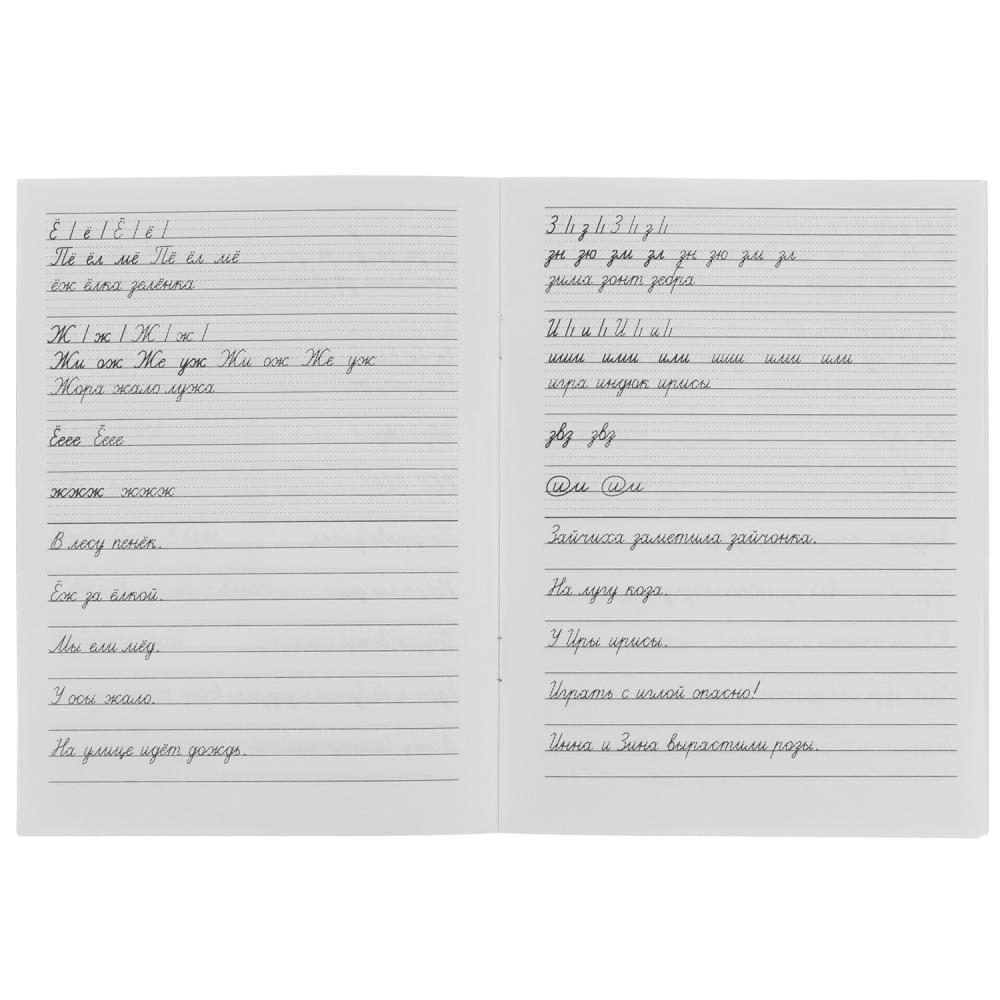 Ё / ё / Ё / ё /
Пё ёл мё Пё ёл мё
ёж ёлка зелёнка
Ж / ж / Ж / ж /
Жи ож Же уж Жи ож Же уж
Жора жало лужа
Ёеее Ёеее
жжжж жжжж
В лесу пенёк.
Ёж за ёлкой.
Мы ели мёд.
У осы жало.
На улице идёт дождь.
З з З з
зн зю зм зл зн зю зм зл
зима зонт зебра
И и И и
иши ими или иши ими или
игра индюк ирисы
звз звз
ии ии
Зайчиха заметила зайчонка.
На лугу коза.
У Иры ирисы.
Играть с иглой опасно!
Инна и Зина вырастили розы.